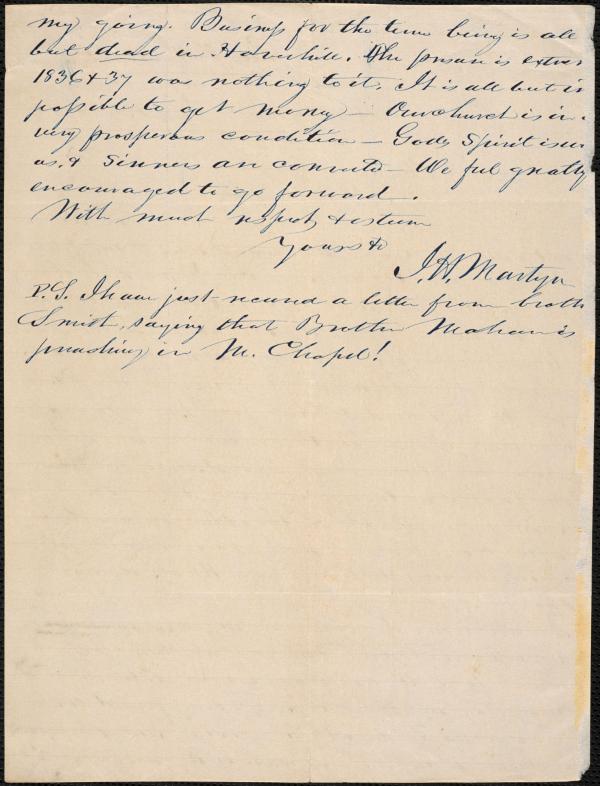 my going. Business for the time being is all
but dead in Haverhill. The pressure is extreme
1836 & 37 was nothing to it. It is all but im
possible to get money – Our church is in a
very prosperous condition – Gods Spirit is with
us, & Sinners are converted – We feel greatly
encouraged to go forward.
With much respect, & esteem
Yours &c
J. H. Martyn
P.S. I have just received a letter from broth
Smith, saying that Brother Mahan is
preaching in M. Chapel!